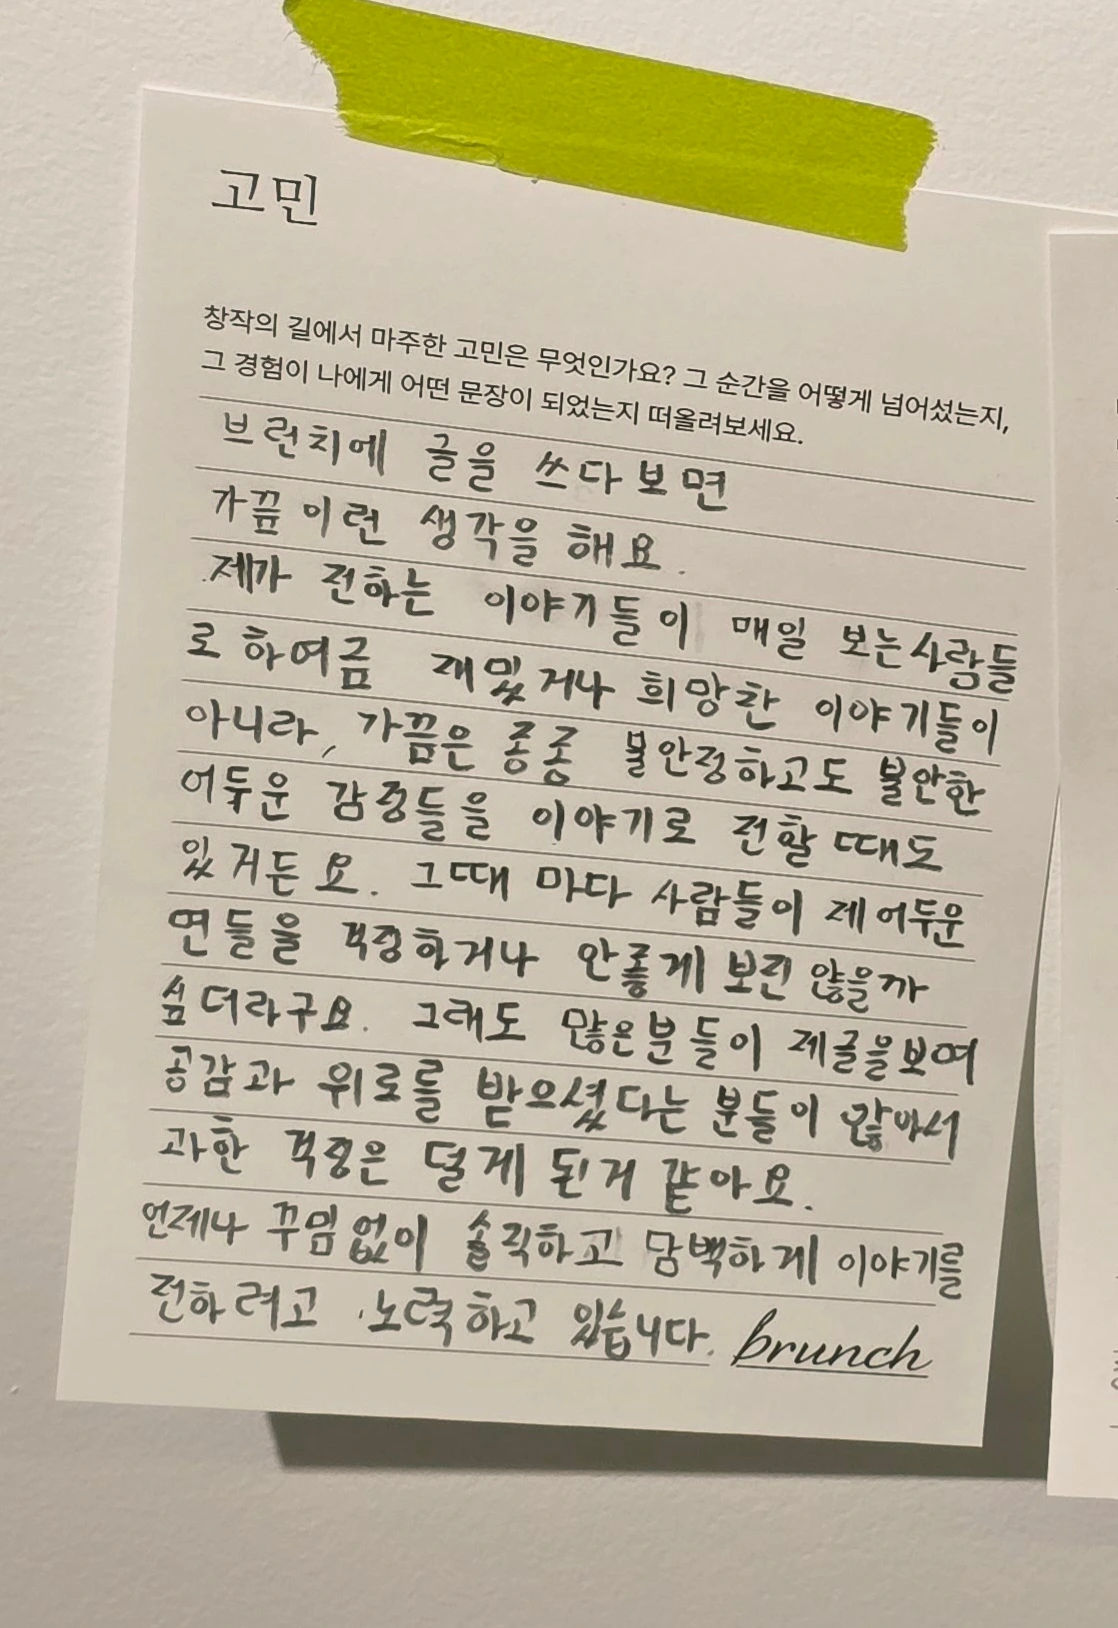 고민
창작의 길에서 마주한 고민은 무엇인가요? 그 순간을 어떻게 넘어섰는지,
그 경험이 나에게 어떤 문장이 되었는지 떠올려보세요.
브런치에 글을 쓰다보면
가끔 이런 생각을 해요.
제가 전하는 이야기들이 매일 보는 사람들
로 하여금 재밌거나 희망찬 이야기들이
아니라, 가끔은 종종 불안정하고도 불안한
어두운 감정들을 이야기로 전할 때도
있거든요. 그때 마다 사람들이 제 어두운
면들을 걱정하거나 안좋게 보진 않을까
싶더라구요. 그래도 많은분들이 제글을보며
공감과 위로를 받으셨다는 분들이 많아서
과한 걱정은 덜게 된거 같아요.
언제나 꾸밈없이 솔직하고 담백하게 이야기를
전하려고 노력하고 있습니다. brunch